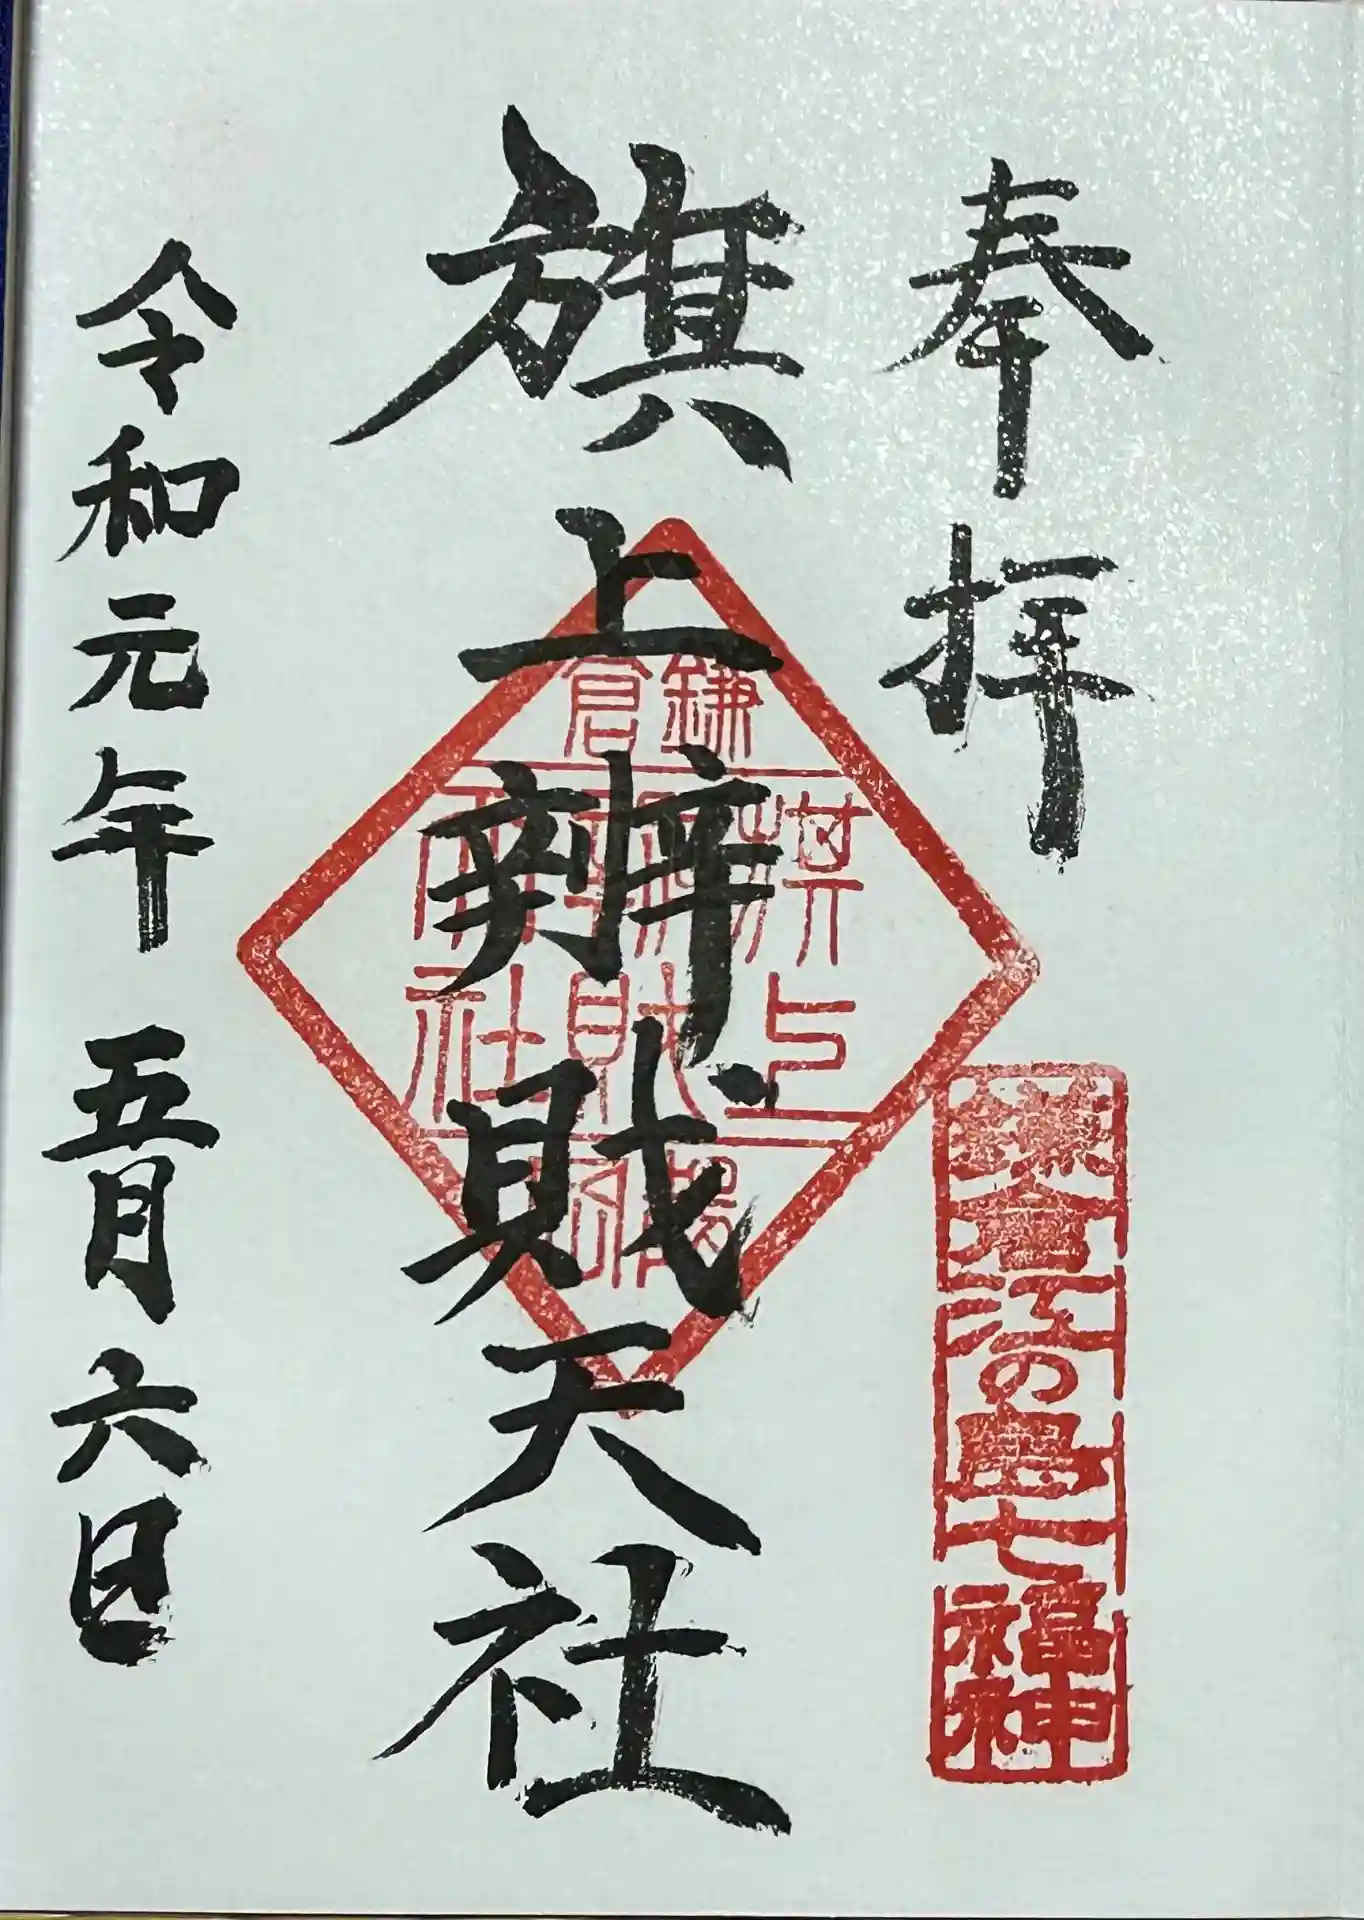 奉拝
鎌倉江の島七福神
旗上辨財天社
鎌倉
旗上
辨財
天社
令和元年五月六日